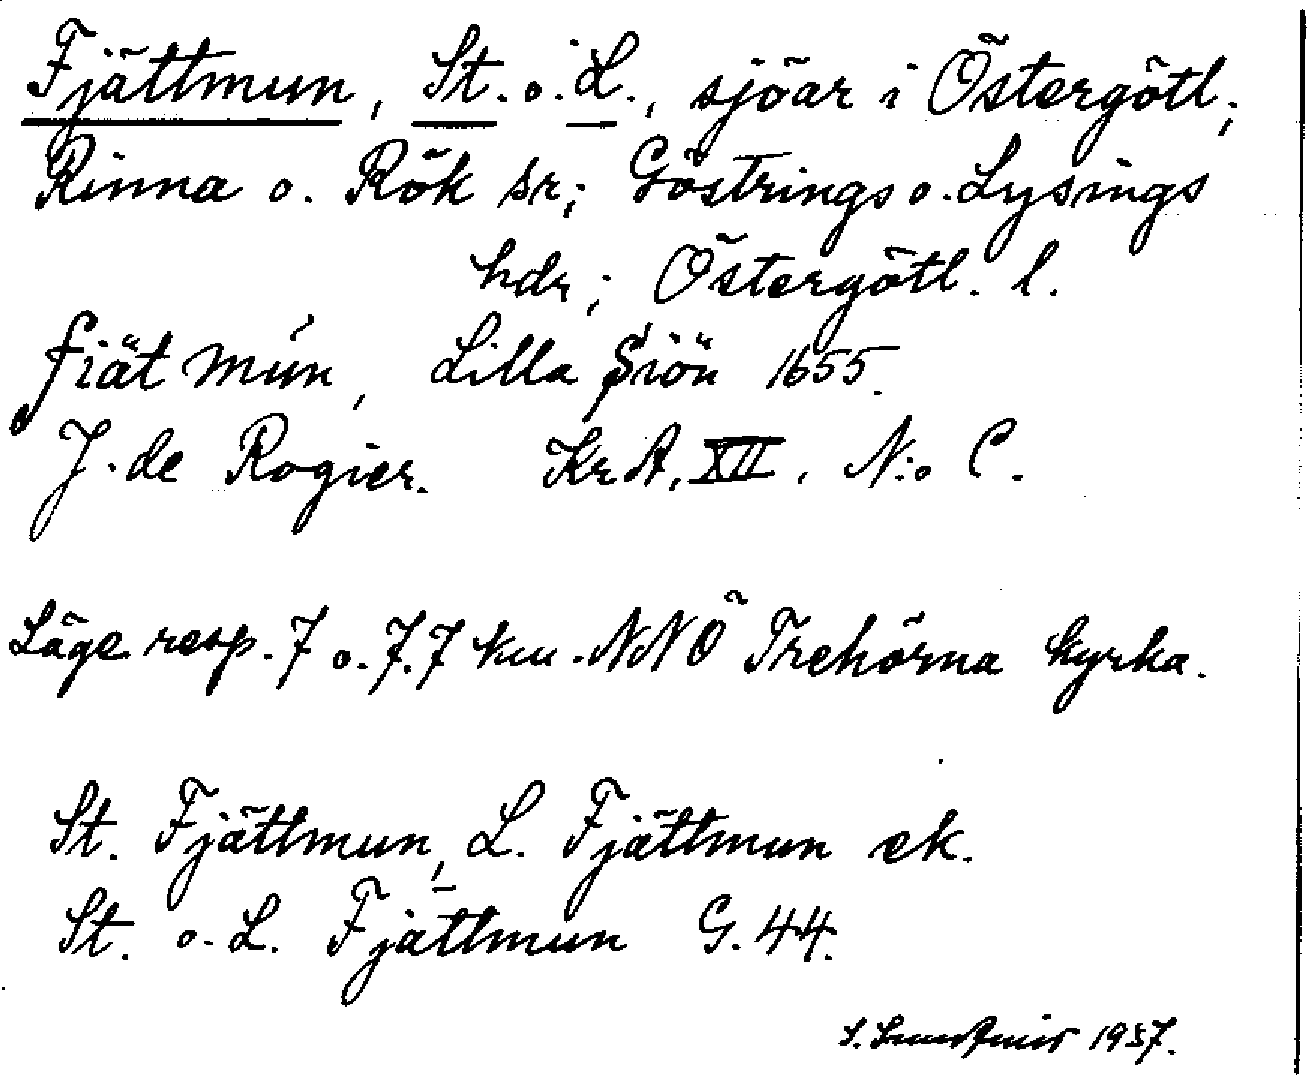 Fjättmun, St. o. L., sjöar i Östergötl;
Rinna o. Rök sr; Göstrings o. Lysings
hdr; Östergötl. l.
fiät mun, Lilla Siön 1655.
J. de Rogier. KrA, XII, N:o C.
Läge resp. 7 o. 7.7 km. NNÖ Trehörna kyrka.
St. Fjättmun, L. Fjättmun ek.
St. o. L. Fjättmun G. 44.
1937.